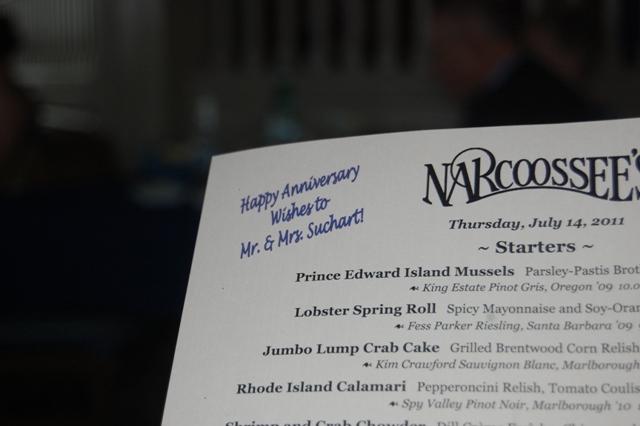 Happy Anniversary
Wishes to
Mr. & Mrs. Suchart!
NARCOOSSEE'S
Thursday, July 14, 2011
~ Starters ~
Prince Edward Island Mussels Parsley-Pastis
King Estate Pinot Gris, Oregon '09 10.0
Lobster Spring Roll Spicy Mayonnaise and
Fess Parker Riesling, Santa Barbara '09
Jumbo Lump Crab Cake Grilled Brentwood Corn Relish
Kim Crawford Sauvignon Blanc, Marlborough
Rhode Island Calamari Pepperoncini Relish, Tomato Coulis
Spy Valley Pinot Noir, Marlborough '10
Shrimp and Crab Chowder